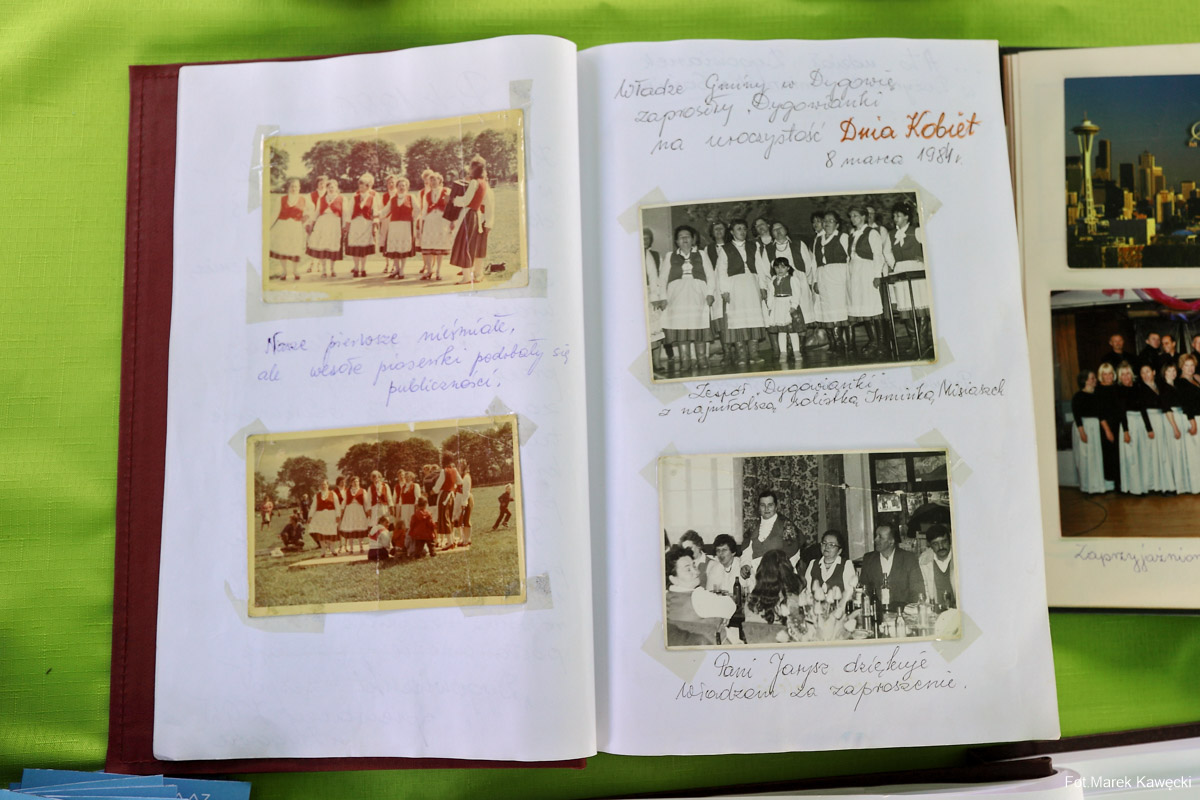 Nasze pierwsze nieśmiałe,
ale wesołe piosenki podobały się
publiczności.
Władze Gminy w Dygowie
zaprosiły "Dygowianki"
na uroczystość Dnia Kobiet
8 marca 1984r.
Zespół "Dygowianki"
z najmłodszą solistką Irminką Misiaszek
Pani Jarysz dziękuje
Władzom za zaproszenie.
Fot Marek Kawęcki